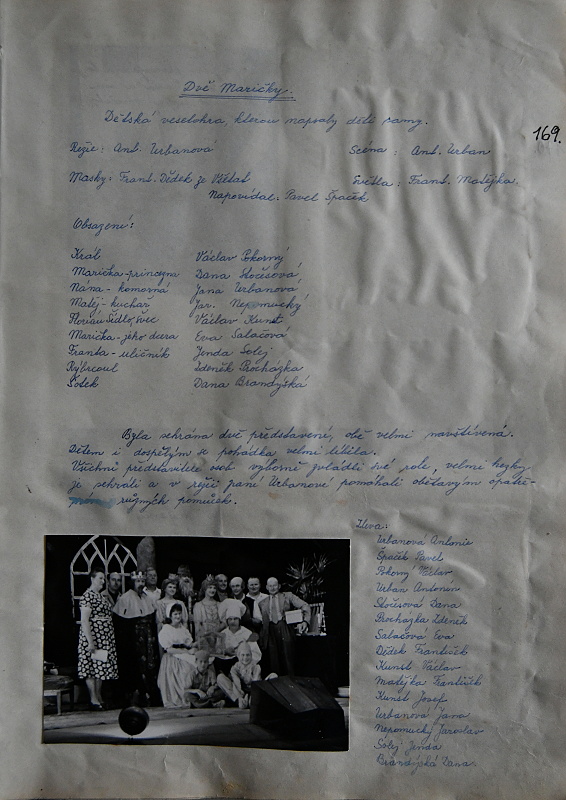 Dvě Maričky.
Dětská veselohra, kterou napsaly děti samy.
169.
Režie: Ant. Urbanová
Scéna: Ant. Urban
Masky: Frant. Dědek ze Všetat
Světla: Frant. Matějka.
Napovídal: Pavel Špaček
Obsazení:
Král Václav Pokorný
Marička-princezna Dana Stočesová
Nána-komorná Jana Urbanová
Matěj-kuchař Jar. Nepomucký
Florian Šidlo, švec Václav Kunst
Marička-jeho dcera Eva Salačová
Franta-uličník Jenda Solej
Rýbrcoul Zdeněk Procházka
Šotek Dana Brandýská
Byla sehrána dvě představení, obě velmi navštívená.
Dětem i dospělým se pohádka velmi líbila.
Všichni představitelé osob výborně zvládli své role, velmi hezky
je sehráli a v režii paní Urbanové pomáhali obětavým opatře-
různých pomůcek.
Zleva:
Urbanová Antonie
Špaček Pavel
Pokorný Václav
Urban Antonín
Stočesová Dana
Procházka Zdeněk
Salačová Eva
Dědek František
Kunst Václav
Matějka František
Kunst Josef
Urbanová Jana
Nepomucký Jaroslav
Solej Jenda
Brandýská Dana